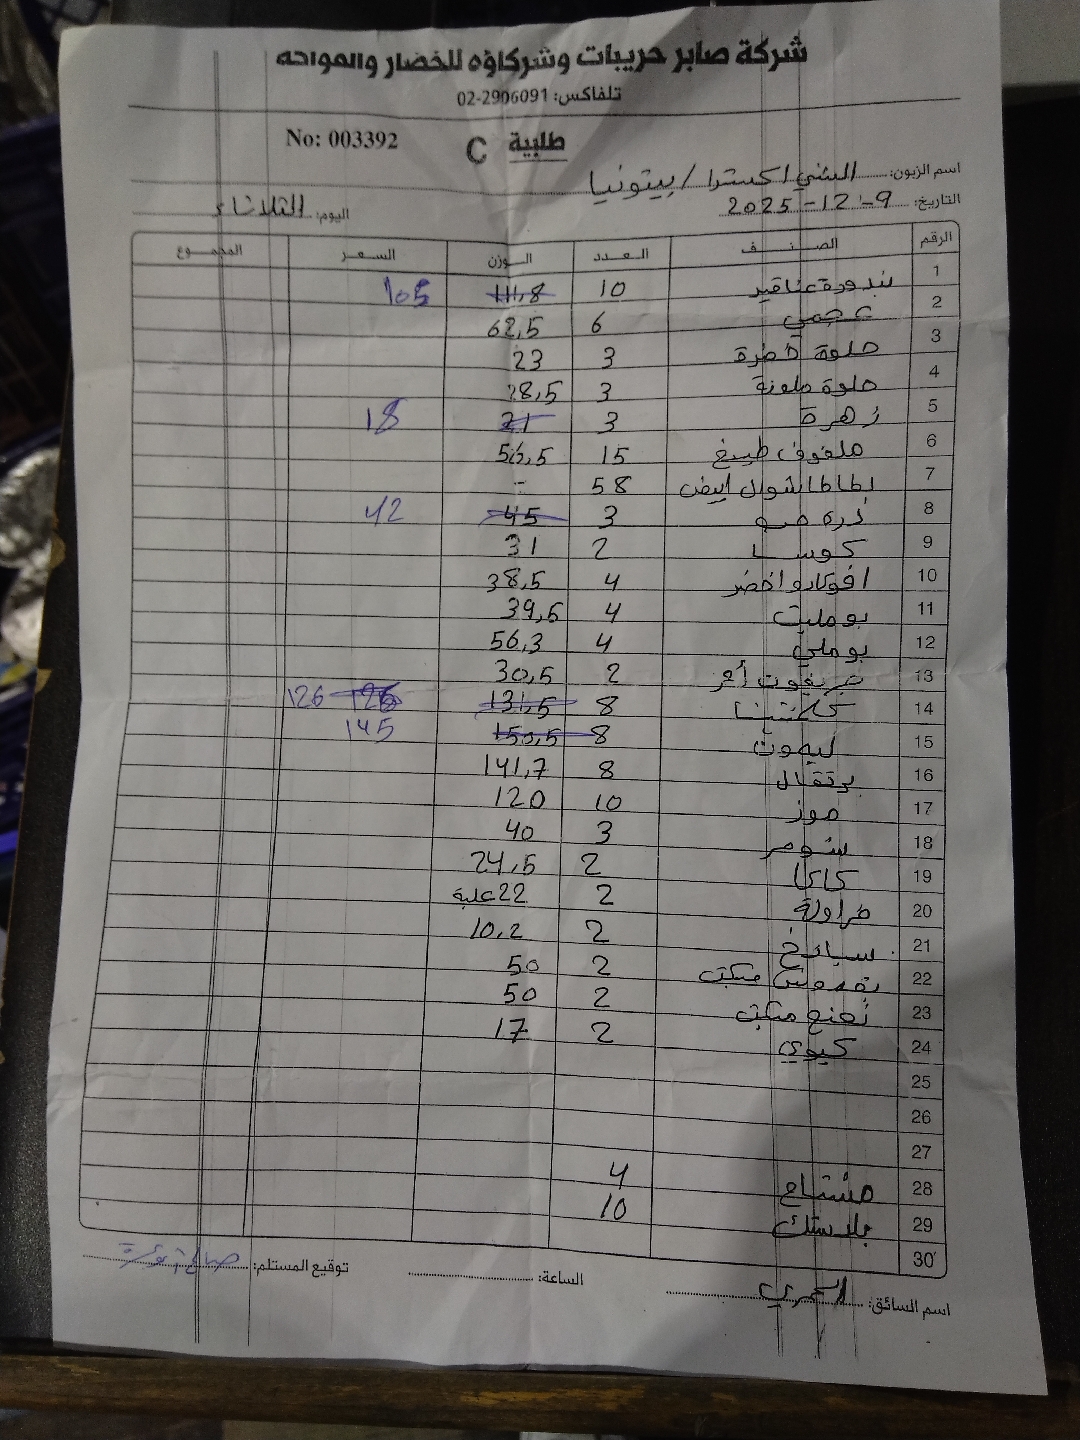 شركة صابر حريبات وشركاؤه للخضار والفواكه
تلفاكس: 02-2906091
No: 003392 طلبية C
اسم الزبون: السني اكسترا / بيتونيا
التاريخ: 9-12-2025 اليوم: الثلاثاء
الرقم الصنف العدد الوزن السعر المجموع
1 بندورة عناقيد 10 111,8 105
2 عجمي 6 62,5
3 حلوة خضرة 3 23
4 حلوة ملونة 3 28,5
5 زهرة 3 21 18
6 ملفوف طبيخ 15 56,5
7 بطاطا شوال ابيض 58 -
8 ذره 3 45 42
9 كوسا 2 31
10 افوكادو اخضر 4 38,5
11 بومليت 4 39,5
12 بوملي 4 56,3
13 جريفوت أحمر 2 30,5
14 كلمنتينا 8 131,5 126 126
15 ليمون 8 150,5 145
16 برتقال 8 141,7
17 موز 10 120
18 شومر 3 40
19 كاكا 2 24,5
20 فراولة 2 22 علبة
21 سبانخ 2 10,2
22 بقدونس مكتب 2 50
23 نعنع مكتب 2 50
24 كيوي 2 17
25
26
27
28 مشتاح 4
29 بلاستك 10
30
اسم السائق: العمري الساعة: توقيع المستلم: